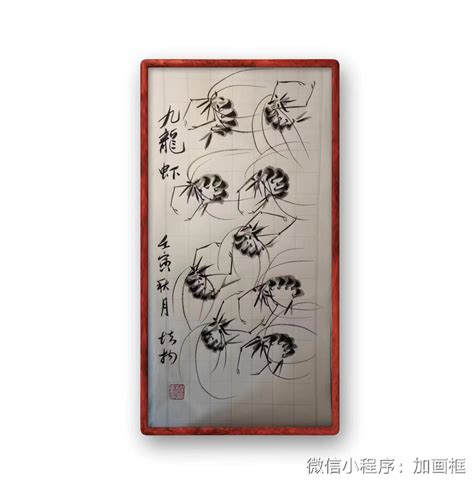 九龍虾
壬寅秋月
微信小程序：加画框